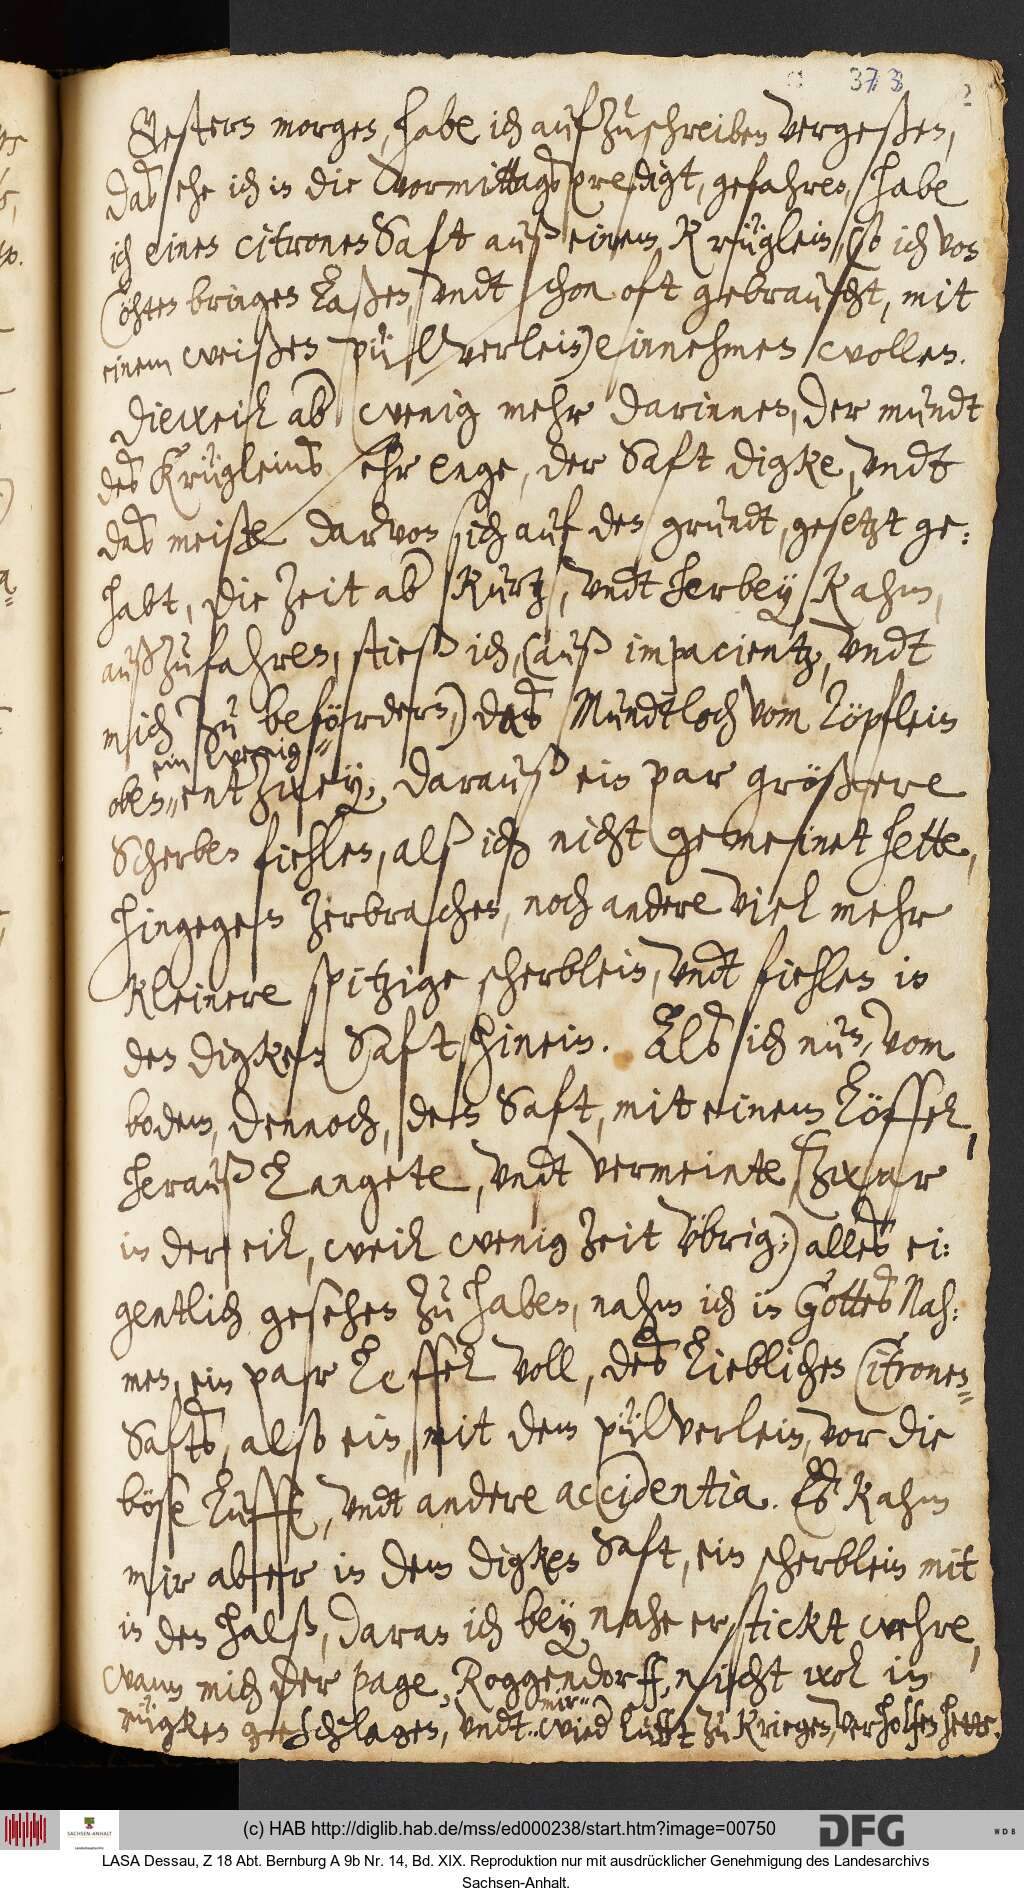 373
Gestern morgen, habe ich aufzuschreiben vergeßen,
das ehe ich in die vormittags predigt, gefahren, habe
ich einen citronen Saft auß einem Krüglein, (so ich von
Cöhten bringen laßen, undt schon oft gebraucht, mit
einem weißen pülverlein) einnehmen wollen.
Dieweil ab wenig mehr darinnen, der mundt
des Krügleins sehr enge, der Saft digke, undt
das meiste darvon sich auf den grundt, gesetzt ge:
habt, die zeit ab kurtz, undt herbey kahm,
außzufahren, stieß ich, (auß impacientz, undt
mich zu befördern,) das Mundtloch vom Töpflein
ein wenig
oben entzwey, darauß ein par größere
Scherben fiehlen, alß ichs nicht gemeinet hette,
hingegen zerbrachen, noch andere viel mehr
kleinere spitzige scherblein, undt fiehlen in
den digken Saft hinein. Als ich nun, vom
bodem, dennoch, den Saft, mit einem Löffel,
herauß langete, undt vermeinte, (zwar
in der eil, weil wenig zeit übrig;) alles ei:
gentlich gesehen zu haben, nahm ich in Gottes Nah:
men, ein par Leffel voll, des lieblichen Citronen=
Safts, also ein, mit dem pülverlein, vor die
böse Lufft, undt andere accidentia. Es kahm
mir aber in dem digken Saft, ein scherblein mit
in den halß, daran ich bey nahe erstickt wehre,
wann mich der page, Roggendorff, nicht wol in
rügken geschlagen, undt mir wied lufft zu kriegen, verholfen hette.
(c) HAB http://diglib.hab.de/mss/ed000238/start.htm?image=00750
SACHSEN-ANHALT
DFG
WDB
LASA Dessau, Z 18 Abt. Bernburg A 9b Nr. 14, Bd. XIX. Reproduktion nur mit ausdrücklicher Genehmigung des Landesarchivs
Sachsen-Anhalt.